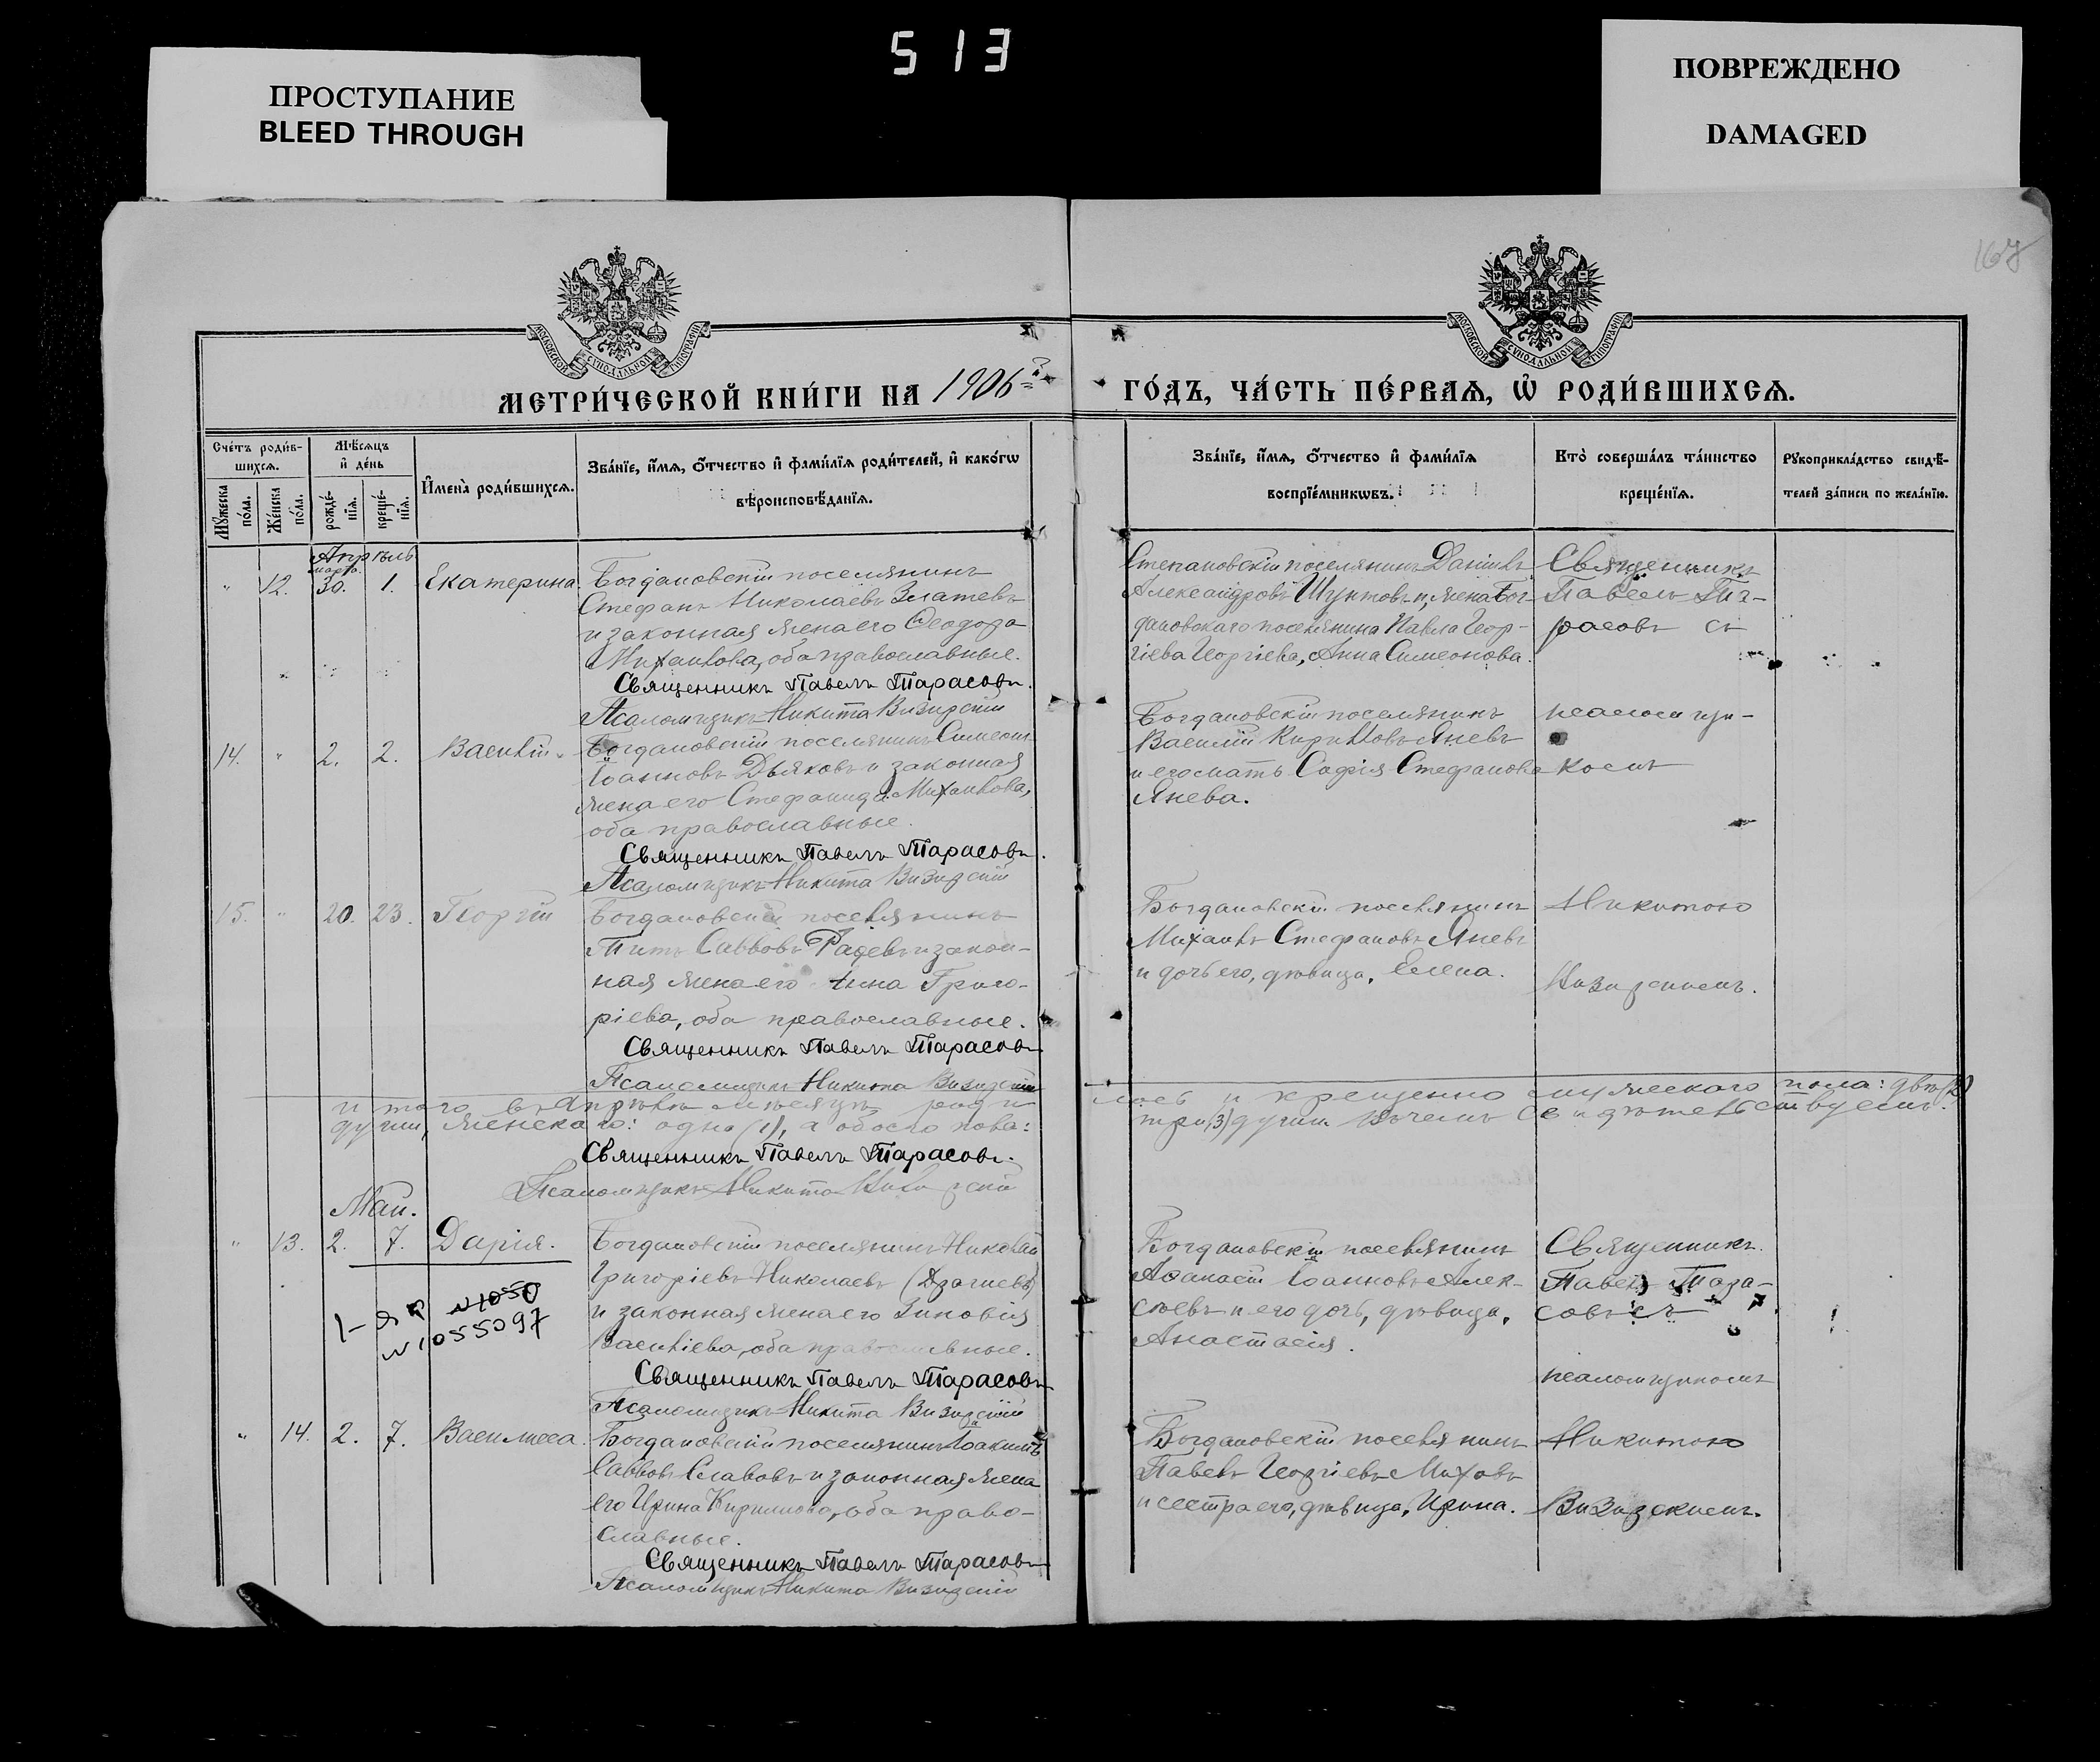 513
ПРОСТУПАНИЕ
BLEED THROUGH
ПОВРЕЖДЕНО
DAMAGED
167
МОСКОВСКОЙ СѴНОДАЛЬНОЙ ТИПОГРАФІИ
МОСКОВСКОЙ СѴНОДАЛЬНОЙ ТИПОГРАФІИ
МЕТРИ́ЧЕСКОЙ КНИ́ГИ НА 1906
ГО́ДЪ, ЧА́СТЬ ПЕ́РВАѦ, Ѿ РОДИ́ВШИХСѦ.
Сче́тъ роди́в-
шихсѧ.
Мѣ́сѧцъ
и҆ де́нь
Мꙋ́жеска по́ла.
Же́нска по́ла.
рожде́-
нїѧ.
креще́-
нїѧ.
И҆мена̀ роди́вшихсѧ.
Зва́нїе, и҆́мѧ, ѻ҆́тчество и҆ фами́лїѧ роди́телей, и҆ како́гѡ
вѣроисповѣ́данїѧ.
Зва́нїе, и҆́мѧ, ѻ҆́тчество и҆ фами́лїѧ
воспрїе́мникѡвъ.
Кто̀ соверша́лъ та́инство
креще́нїѧ.
Рꙋкоприкла́дство свидѣ́-
телей за́писи по жела́нїю.
Апрѣль
марта.
" 12. 30. 1. Екатерина. Богдановскій поселянинъ
Стефанъ Николаевъ Златевъ
и законная жена его Ѳеодора
Михаилова, оба православные.
Священникъ Павелъ Тарасовъ.
Псаломщикъ Никита Визирскій
Степановскій поселянинъ Даніилъ
Александровъ Шунтовъ и, жена Бог-
дановскаго поселянина Павла Геор-
гіева Георгіева, Анна Симеонова.
Священникъ
Павелъ Та-
расовъ съ
14. " 2. 2. Василій. Богдановскій поселянинъ Симеонъ
Іоанновъ Дьяковъ и законная
жена его Стефанида Михаилова,
оба православные.
Священникъ Павелъ Тарасовъ.
Псаломщикъ Никита Визирскій
Богдановскій поселянинъ
Василій Кирилловъ Яневъ
и его мать Софія Стефанова
Янева.
псаломщи-
комъ
15. " 20. 23. Георгій Богдановскій поселянинъ
Титъ Савовъ Радевъ и закон-
ная жена его Анна Григо-
ріева, оба православные.
Священникъ Павелъ Тарасовъ
Псаломщикъ Никита Визирскій
Богдановскій поселянинъ
Михаилъ Стефановъ Яневъ
и дочь его, дѣвица, Елена.
Никитою
Визирскимъ.
итого въ Апрѣлѣ мѣсяцѣ роди-
лось и крещено мужескаго пола: двѣ (2)
души, женскаго: одна (1), а обоего пола:
три (3) души въ чемъ и свидѣтельствуемъ.
Священникъ Павелъ Тарасовъ.
Псаломщикъ Никита Визирскій
Май.
" 13. 2. 7. Дарія. Богдановскій поселянинъ Николай
Григоріевъ Николаевъ (Дзагневъ)
и законная жена его Зиновія
Василіева, оба православные.
Священникъ Павелъ Тарасовъ
Псаломщикъ Никита Визирскій
N 1050
N 1055097
Богдановскій поселянинъ
Аѳанасій Іоанновъ Алек-
сѣевъ и его дочь, дѣвица,
Анастасія.
Священникъ
Павелъ Тара-
совъ съ
псаломщикомъ
" 14. 2. 7. Василисса. Богдановскій поселянинъ Іоакимъ
Саввовъ Славовъ и законная жена
его Ирина Кириллова, оба право-
славные.
Священникъ Павелъ Тарасовъ
Псаломщикъ Никита Визирскій
Богдановскій поселянинъ
Павелъ Георгіевъ Миховъ
и сестра его, дѣвица, Ирина.
Никитою
Визирскимъ.